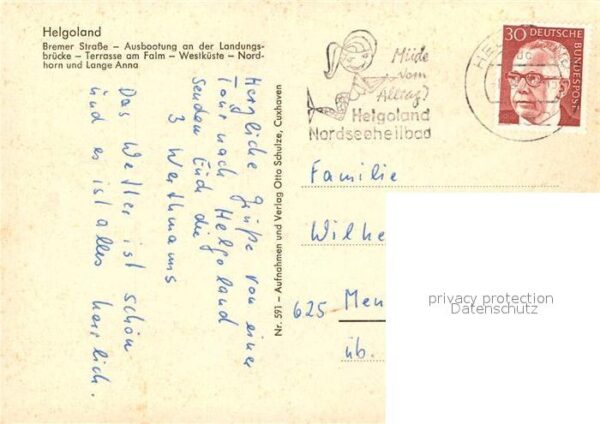 Helgoland
Bremer Straße – Ausbootung an der Landungs-
brücke – Terrasse am Falm – Westküste – Nord-
horn und Lange Anna
Herzliche Grüße von einer
Tour nach Helgoland
senden Euch die
3 Werthmanns
Das Wetter ist schön
und es ist alles herrlich.
Nr. 591 – Aufnahmen und Verlag Otto Schulze, Cuxhaven
Müde
vom
Alltag?
Helgoland
Nordseeheilbad
30 DEUTSCHE
BUNDESPOST
Familie
Wilhe
625 Men
üb.
privacy protection
Datenschutz